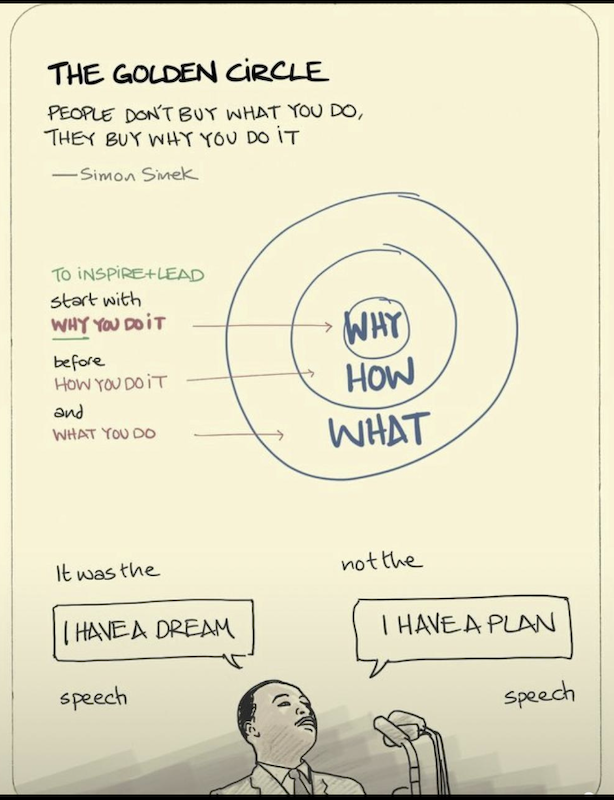 THE GOLDEN CIRCLE
PEOPLE DON'T BUY WHAT YOU DO,
THEY BUY WHY YOU DO IT
—Simon Sinek
TO INSPIRE+LEAD
start with
WHY YOU DO IT
before
HOW YOU DO IT
and
WHAT YOU DO
WHY
HOW
WHAT
It was the
I HAVE A DREAM
speech
not the
I HAVE A PLAN
speech